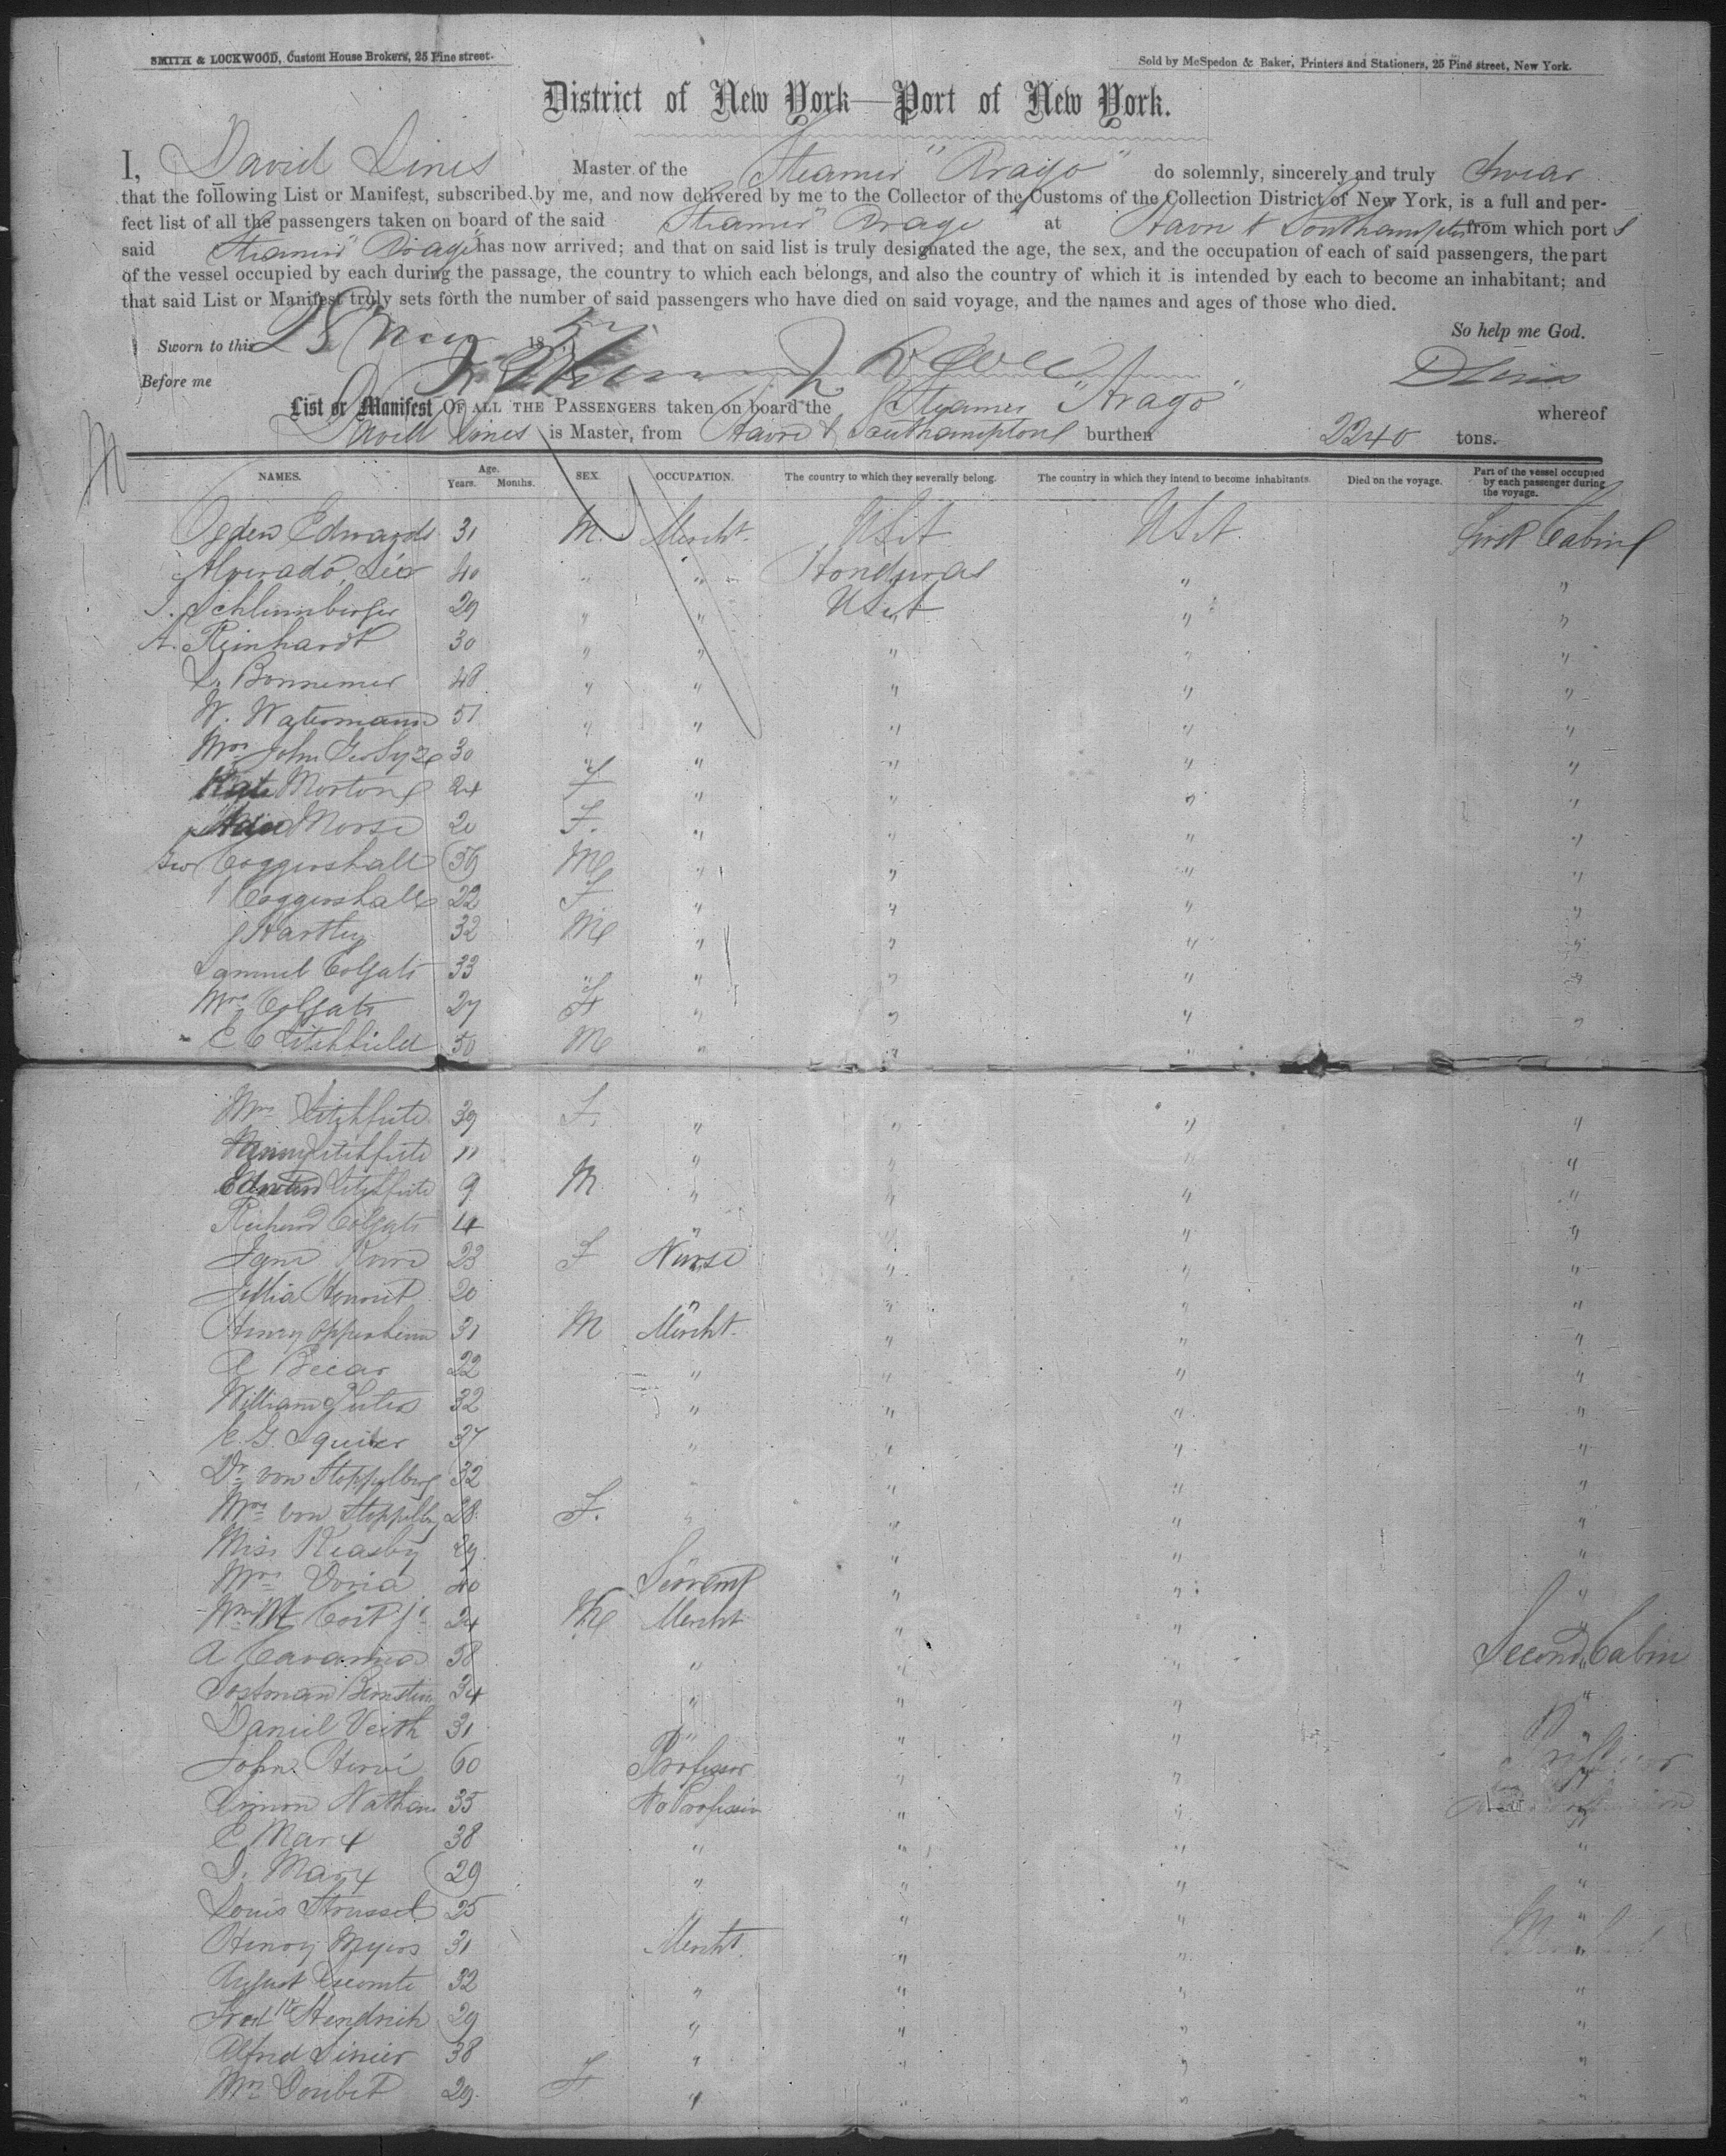 SMITH & LOCKWOOD, Custom House Brokers, 25 Pine street.
Sold by McSpedon & Baker, Printers and Stationers, 25 Pine street, New York.
District of New York—Port of New York.
I, David Lines Master of the Steamer "Arago" do solemnly, sincerely and truly Swear
that the following List or Manifest, subscribed by me, and now delivered by me to the Collector of the Customs of the Collection District of New York, is a full and per-
fect list of all the passengers taken on board of the said Steamer "Arago" at Havre & Southampton from which port s
said Steamer "Arago" has now arrived; and that on said list is truly designated the age, the sex, and the occupation of each of said passengers, the part
of the vessel occupied by each during the passage, the country to which each belongs, and also the country of which it is intended by each to become an inhabitant; and
that said List or Manifest truly sets forth the number of said passengers who have died on said voyage, and the names and ages of those who died.
So help me God.
Sworn to this 18
Before me D Lines
List or Manifest OF ALL THE PASSENGERS taken on board the Steamer "Arago" whereof
David Lines is Master, from Havre & Southampton burthen 2240 tons.
NAMES. Age. Years. Months. SEX. OCCUPATION. The country to which they severally belong. The country in which they intend to become inhabitants. Died on the voyage. Part of the vessel occupied by each passenger during the voyage.
Ogden Edwards 31 M. Mercht. USA USA. First Cabin
Alverado, 40 " " Honduras " "
Schlumberger 29 " " USA " "
A. Reinhardt 30 " " " " "
Bonnemer 48 " " " " "
W. Watermann 51 " " " " "
Mrs John 30 " " " " "
Kate Morton 24 F " " " "
Morse 20 F. " " " "
Geo Coggershall 56 M " " " "
Coggershall 22 F " " " "
J Hartley 32 M " " " "
Samuel Colgate 33 " " " " "
Mrs Colgate 27 F " " " "
E C Litchfield 50 M " " " "
Mrs Litchfield 39 F. " " " "
Litchfield 11 " " " "
Edward Litchfield 9 M " " " "
Richard Colgate 4 " " " "
Jane 23 F Nurse " " "
Julia 20 " " " "
Henry Oppenheim 31 M Mercht. " " "
A Becar 22 " " " "
William 32 " " " "
E. G. Squier 37 " " " "
Dr von Stoppelberg 32 " " " "
Mrs von Stoppelberg 28. F. " " " "
Miss Keasby 29 " " "
Mrs Doria 40 Servant " " "
Wm Coit Jr 24 M Mercht " "
A 38 " " " Second Cabin
Bernstein 34 " " " "
Daniel Veith 31 " " " "
John Hervé 60 Professor " " "
Simon Nathan 35 No Profession " " "
C Marx 38 " " " "
S. Marx 29 " " " "
Louis Strussel 25 " " " "
Henry Myers 31 Mercht. " " "
August Lecomte 32 " " " "
Fredk Hendrich 29 " " " "
Alfred 38 " " " "
Mrs Doubet 29. F " " " "